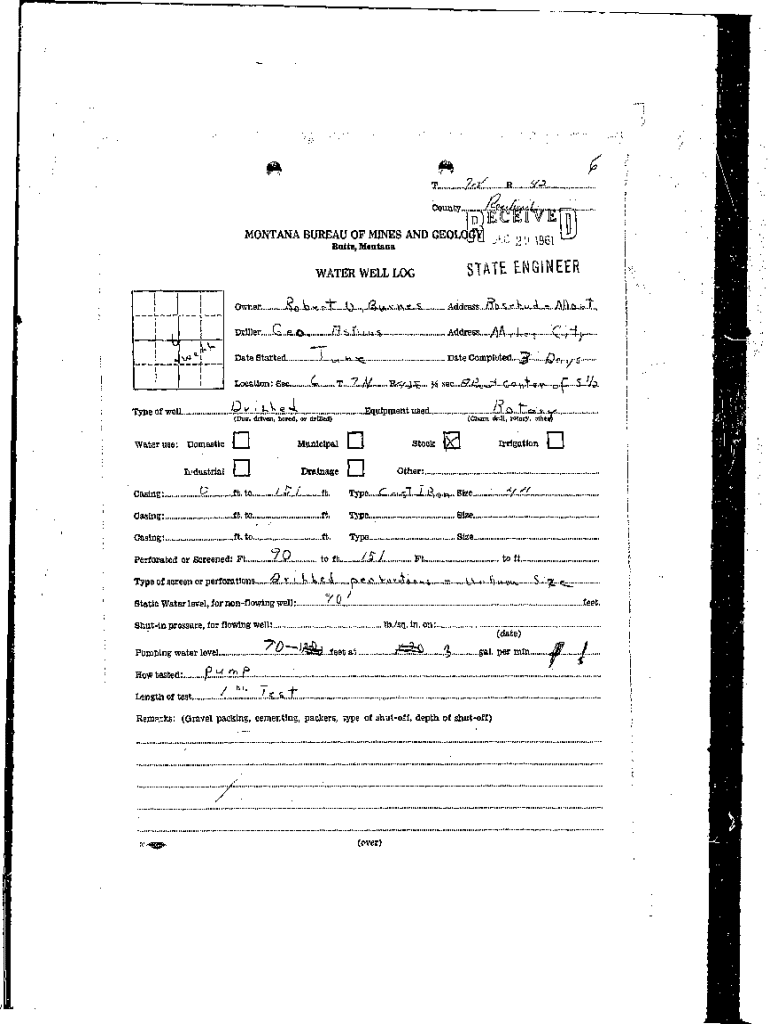 6
T. 7N R. 42
County Rosebud
RECEIVED
MONTANA BUREAU OF MINES AND GEOLOGY
Butte, Montana
DEC 29 1961
WATER WELL LOG
STATE ENGINEER
Owner Robert V. Burnes Address Rosebud - Mont
Driller Geo. Address City
Date Started June Date Completed 3 Days
Location: Sec. 6 T. 7N R. 42E ¼ sec. center of S ½
Type of well Drilled Equipment used Rotary
(Dug, driven, bored, or drilled) (Churn drill, rotary, other)
Water use: Domestic Municipal Stock X Irrigation
Industrial Drainage Other:
Casing: 0 ft. to 151 ft. Type Cast Iron Size 4"
Casing: ft. to ft. Type Size
Casing: ft. to ft. Type Size
Perforated or Screened: Ft. 90 to ft. 151 Ft. to ft.
Type of screen or perforations Drilled Size
Static Water level, for non-flowing well: 70' feet.
Shut-in pressure, for flowing well: lb/sq. in. on:
(date)
Pumping water level 70- feet at 3 gal. per min
How tested: Pump
Length of test 1 hr Test
Remarks: (Gravel packing, cementing, packers, type of shut-off, depth of shut-off)
(over)